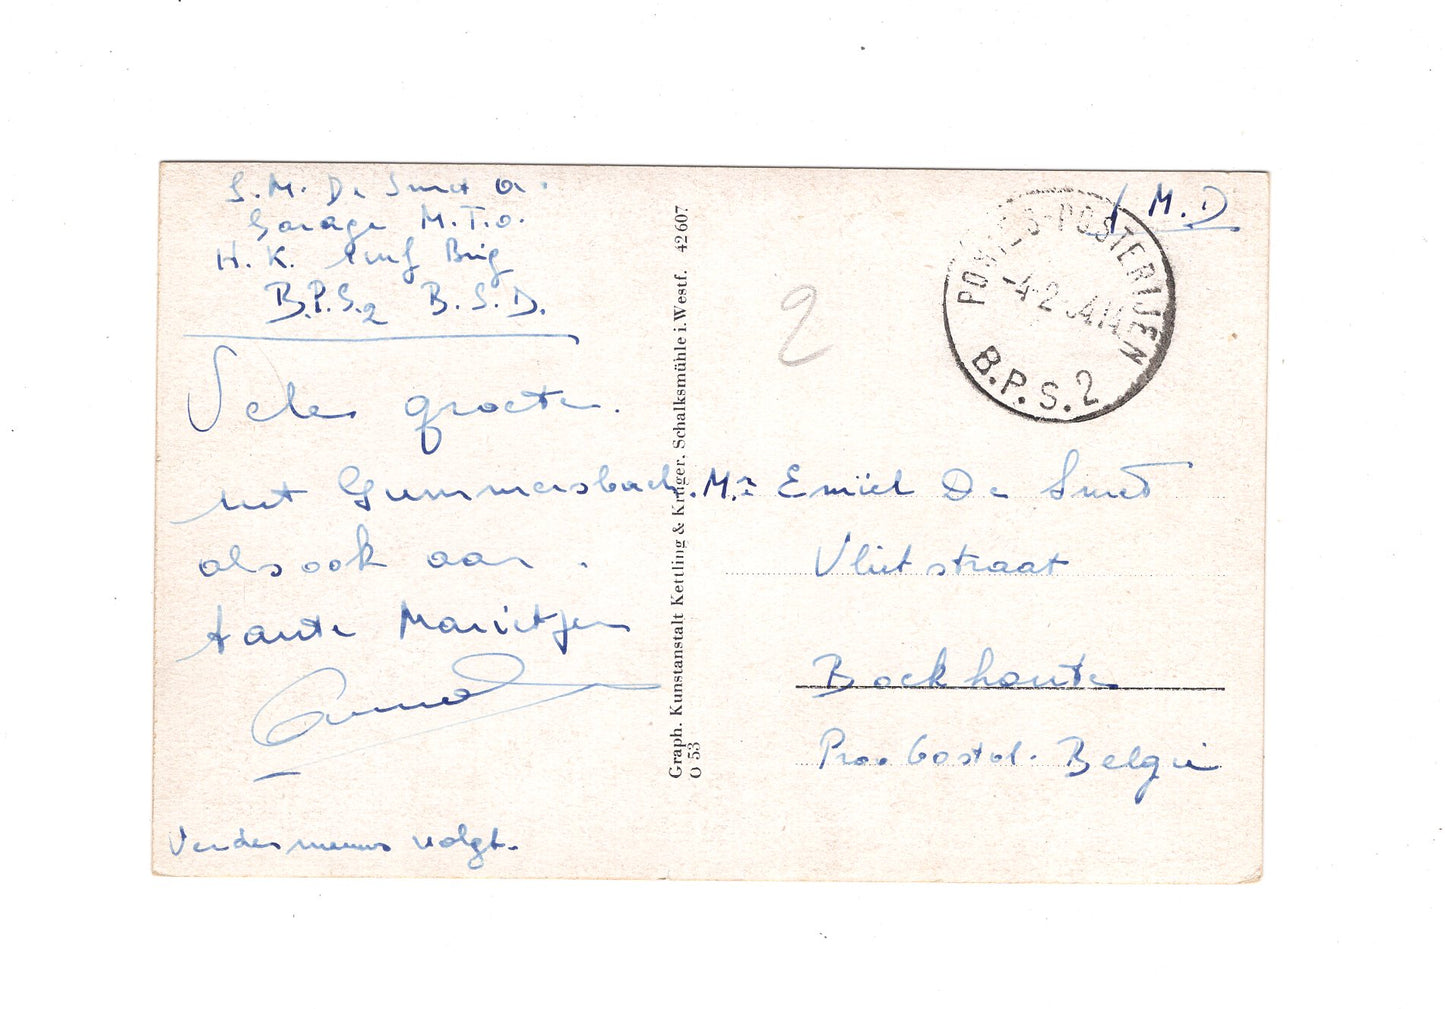 S.M. De Smet A.
Garage M.T.O.
H.K. Inf Brig
B.P.S.2 B.S.D.
Vele groeten.
uit Gummersbach.
alsook aan
tante Marietjen
Verder nieuws volgt.
Graph. Kunstanstalt Kettling & Krüger, Schalksmühle i. Westf. 42607
O 53
2
M.D
POSTES-POSTERIJEN
-4-2-5414
B.P.S.2
Mr Emiel De Smet
Vlietstraat
Boekhoute
Prov. Oostvl. België